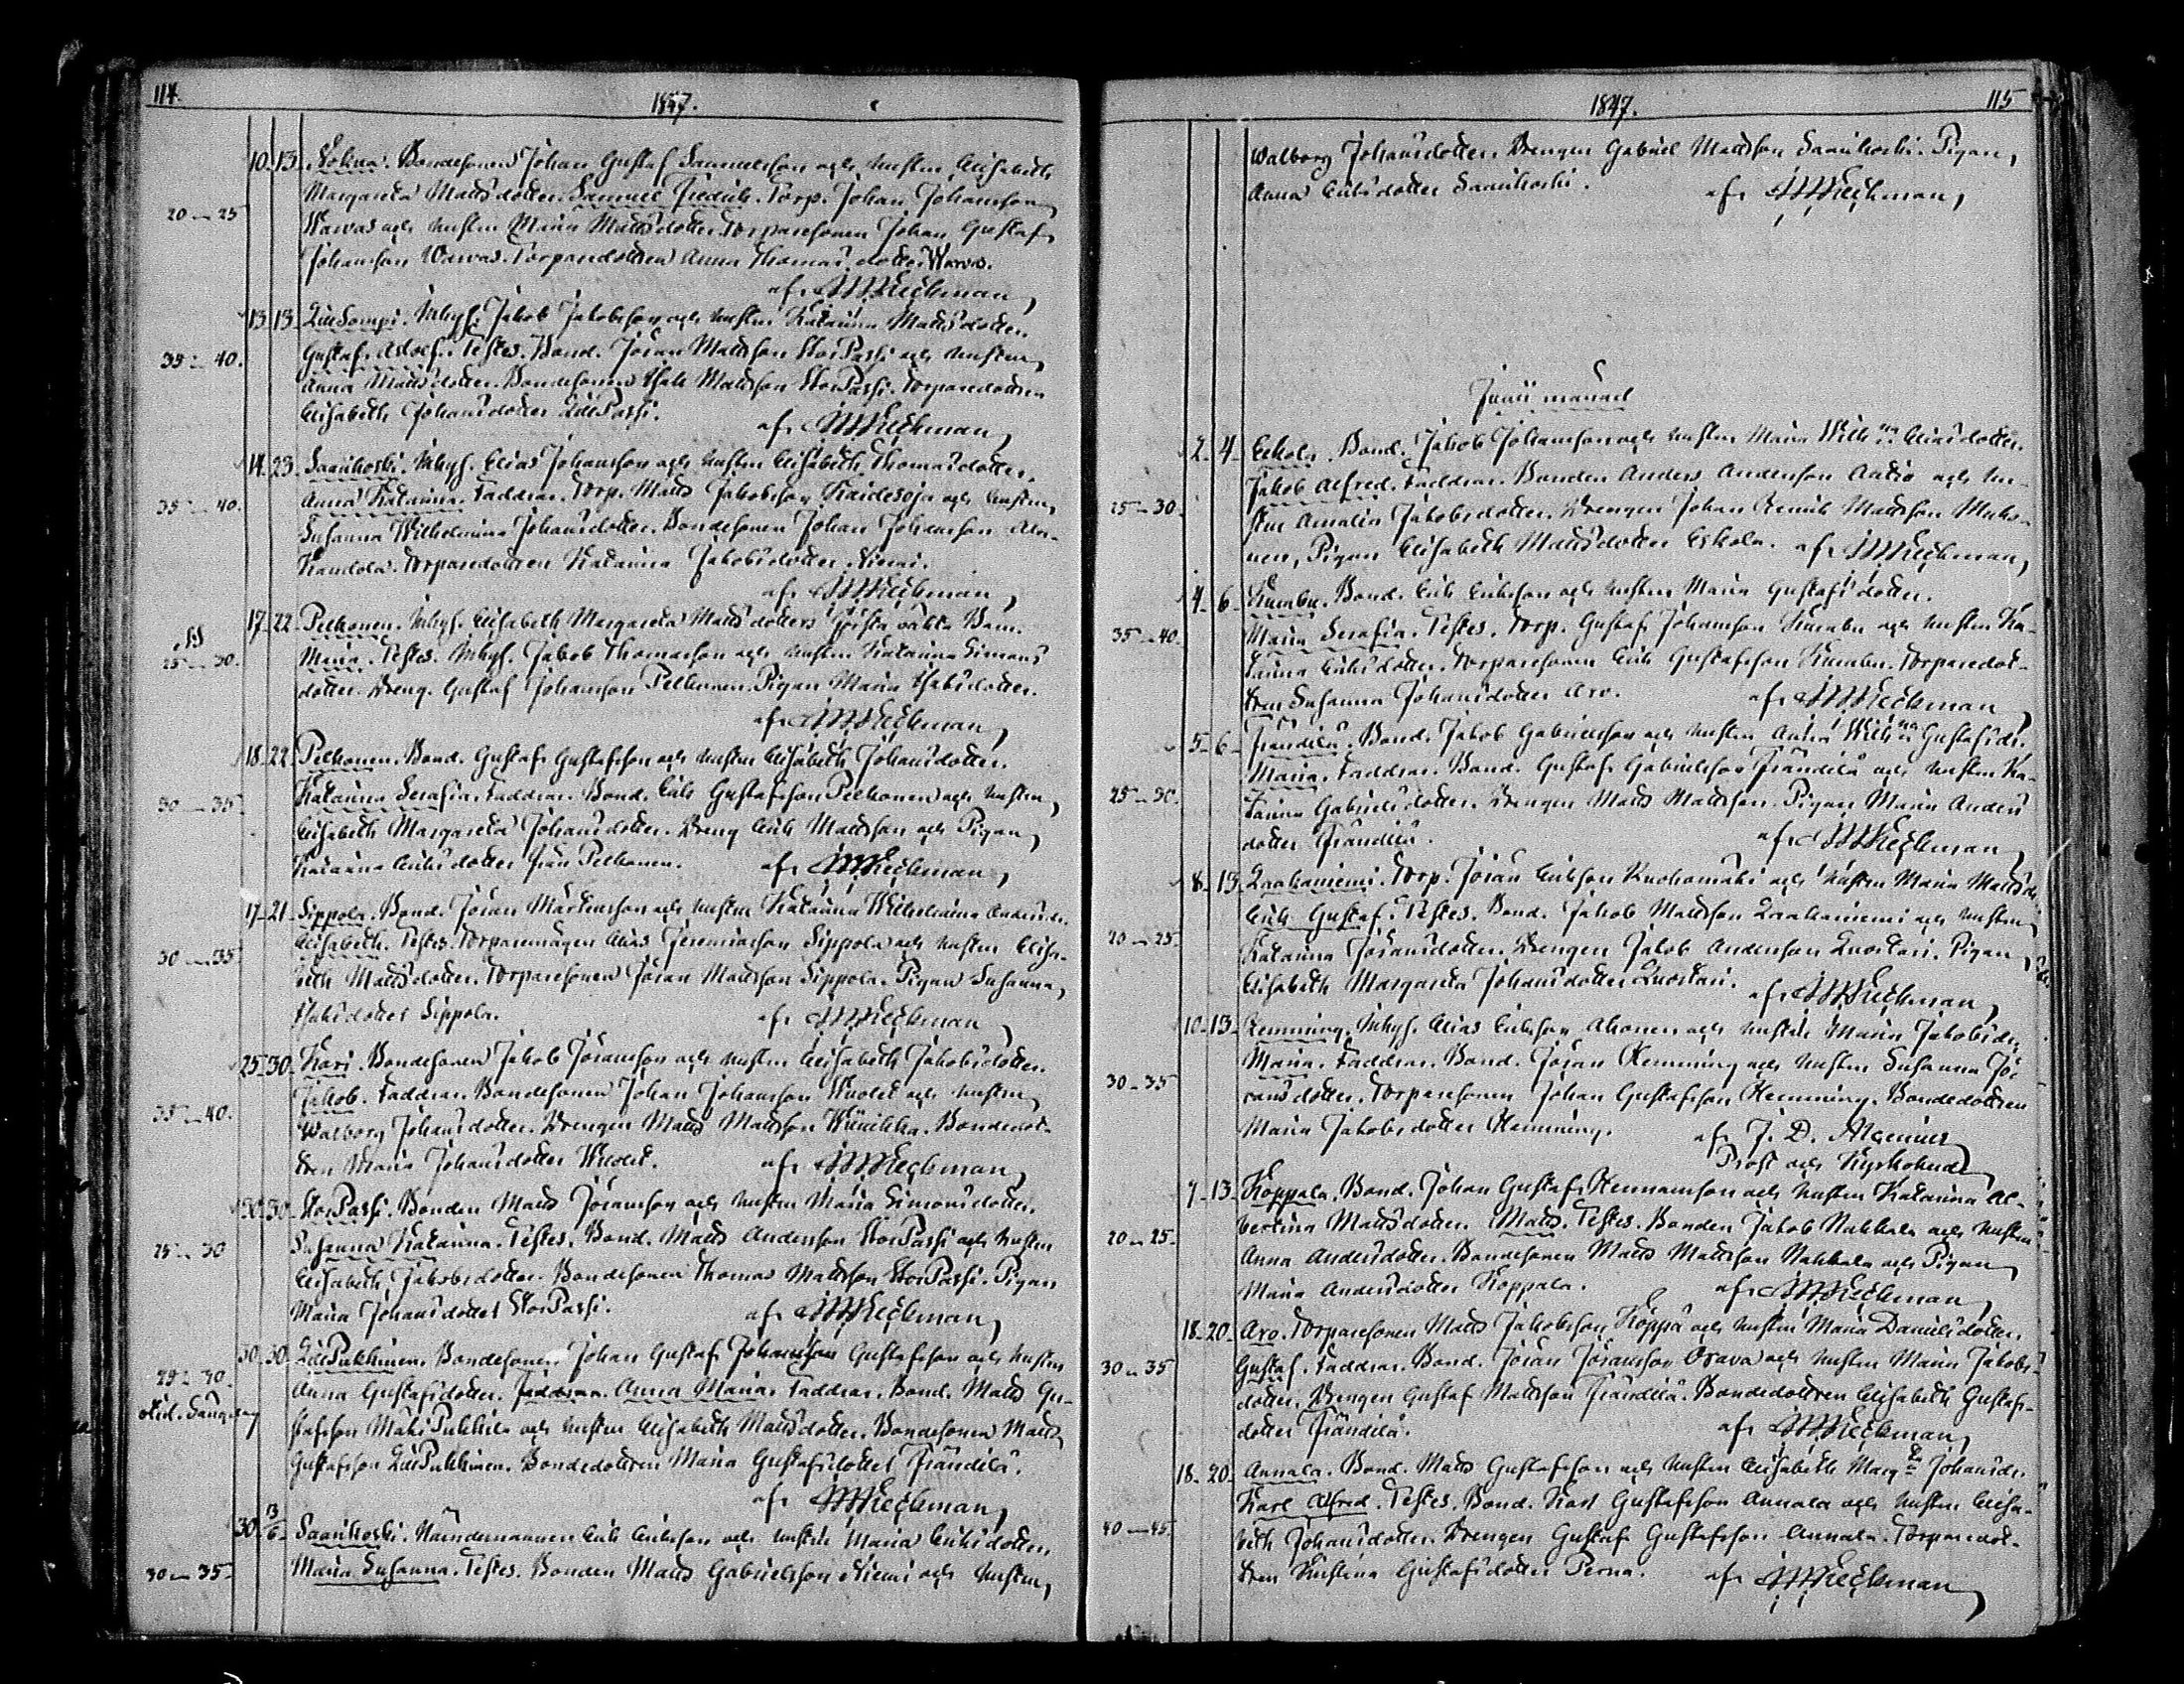 114.
1847.
10. 13. Bondesonen Johan Gustaf Samuelsson och hustru Elisabeth
Margareta Mattsdotter. Samuel Fredrik. Torp. Johan Johansson
20 — 25
Warvas och hustru Maria Mattsdotter. Torparesonen Johan Gustaf
Johansson Warvas. Torparedottren Anna Thomasdotter Warvas.
af
13. 13. Lillsompi. Inhys. Jakob Jakobsson och hustru Katarina Mattsdotter.
35 — 40.
Gustaf Adolf. Testes. Bond. Jöran Mattsson StorPassi och hustru
Anna Mattsdotter. Bondesonen Isak Mattsson StorPassi. Torparedottren
Elisabeth Johansdotter LillPassi.
af
14. 23. Saarikoski. Inhys. Elias Johansson och hustru Elisabeth Thomasdotter.
35 — 40.
Anna Katarina. Faddrar. Torp. Matts Jakobsson Kaidesoja och hustru
Susanna Wilhelmina Johansdotter. Bondesonen Johan Johansson Ala-
Kandola. Torparedottren Katarina Jakobsdotter Niemi.
af
17. 22. Pelkonen. Inhys. Elisabeth Margareta Mattsdotters första oäkta Barn.
25 — 30.
Maria. Testes. Inhys. Jakob Thomasson och hustru Katarina Simons
dotter. Dreng. Gustaf Johansson Pelkonen. Pigan Maria Isaksdotter.
af
18. 22. Pelkonen. Bond. Gustaf Gustafsson och hustru Elisabeth Johansdotter.
30 — 35
Katarina Serafia. Faddrar. Bond. Erik Gustafsson Pelkonen och hustru
Elisabeth Margareta Johansdotter. Dreng Erik Mattsson och Pigan
Katarina Eriksdotter från Pelkonen.
af
17. 21. Sippola. Bond. Jöran Mårtensson och hustru Katarina Wilhelmina Andersdr.
30 — 35
Elisabeth. Testes. Torparemågen Elias Jeremiasson Sippola och hustru Elisa-
beth Mattsdotter. Torparesonen Jöran Mattsson Sippola. Pigan Susanna
Isaksdotter Sippola.
af
25. 30. Kari. Bondesonen Jakob Jöransson och hustru Elisabeth Jakobsdotter.
35 — 40.
Jakob. Faddrar. Bondesonen Johan Johansson Wuolet och hustru
Walborg Johansdotter. Drengen Matts Mattsson Wiinikka. Bondedot-
tren Maria Johansdotter Wuolet.
af
30. 30. StorPassi. Bonden Matts Jöransson och hustru Maria Simonsdotter.
25 — 30
Susanna Katarina. Testes. Bond. Matts Andersson StorPassi och hustru
Elisabeth Jakobsdotter. Bondesonen Thomas Mattsson StorPassi. Pigan
Maria Johansdotter StorPassi.
af
30. 30. LillPukkinen. Bondesonen Johan Gustaf Johansson Gustafsson och hustru
25 — 30.
Anna Gustafsdotter. Faddrar. Anna Maria. Faddrar. Bond. Matts Gu-
stafsson MäkiPukkila och hustru Elisabeth Mattsdotter. Bondesonen Matts
Gustafsson LillPukkinen. Bondedottren Maria Gustafsdotter Frändilä.
af
30. 13/6. Saarikoski. Nämndemannen Erik Eriksson och hustru Maria Eriksdotter.
30 — 35.
Maria Susanna. Testes. Bonden Matts Gabrielsson Niemi och hustru
1847.
115
Walborg Johansdotter. Drengen Gabriel Mattsson Saarikoski. Pigan
Anna Eriksdotter Saarikoski.
af
Junii månad
2. 4. Eskola. Bond. Jakob Johansson och hustru Maria Wilh:na Eliasdotter.
25 — 30.
Jakob Alfred. Faddrar. Bonden Anders Andersson Antio och hu-
stru Amalia Jakobsdotter. Drengen Johan Henrik Mattsson Muho-
nen, Pigan Elisabeth Mattsdotter Eskola. af
4. 6. Kumbu. Bond. Erik Eriksson och hustru Maria Gustafsdotter.
35 — 40.
Maria Serafia. Testes. Torp. Gustaf Johansson Kumbu och hustru Ka-
tarina Eriksdotter. Torparesonen Erik Gustafsson Kumbu. Torparedot-
tren Susanna Johansdotter Aro.
af
5. 6. Frändilä. Bond. Jakob Gabrielsson och hustru Anna Wilh:na Gustafsdr.
25 — 30.
Maria. Faddrar. Bond. Gustaf Gabrielsson Frändilä och hustru Ka-
tarina Gabrielsdotter. Drengen Matts Mattsson. Pigan Maria Anders
dotter Frändilä.
af
8. 13. Laakaniemi. Torp. Jöran Eriksson Ruohomäki och hustru Maria Mattsdr.
20 — 25.
Erik Gustaf. Testes. Bond. Jakob Mattsson Laakaniemi och hustru
Katarina Jöransdotter. Drengen Jakob Andersson Luostari. Pigan
Elisabeth Margareta Johansdotter Luostari.
af
10. 13. Hemming. Inhys. Elias Eriksson Ahonen och hustru Maria Jakobsdr.
30 — 35
Maria. Faddrar. Bond. Jöran Hemming och hustru Susanna Jö-
ransdotter. Torparesonen Johan Gustafsson Hemming. Bondedottren
Maria Jakobsdotter Hemming.
af J. D. Alcenius
Prost och Kyrkoherde
7. 13. Koppala. Bond. Johan Gustaf Hermansson och hustru Katarina Al-
20 — 25.
bertina Mattsdotter. Matts. Testes. Bonden Jakob Nakkala och hustru
Anna Andersdotter. Bondesonen Matts Mattsson Nakkala och Pigan
Maria Andersdotter Koppala.
af
18. 20. Aro. Torparesonen Matts Jakobsson Koppä och hustru Maria Danielsdotter.
30 — 35
Gustaf. Faddrar. Bond. Jöran Jöransson Orava och hustru Maria Jakobs-
dotter. Drengen Gustaf Mattsson Frändilä. Bondedottren Elisabeth Gustafs-
dotter Frändilä.
af
18. 20. Annala. Bond. Matts Gustafsson och hustru Elisabeth Marg:ta Johansdr.
40 — 45
Karl Alfred. Testes. Bond. Karl Gustafsson Annala och hustru Elisa-
beth Johansdotter. Drengen Gustaf Gustafsson Annala. Torparedot-
tren Kristina Gustafsdotter Perna.
af